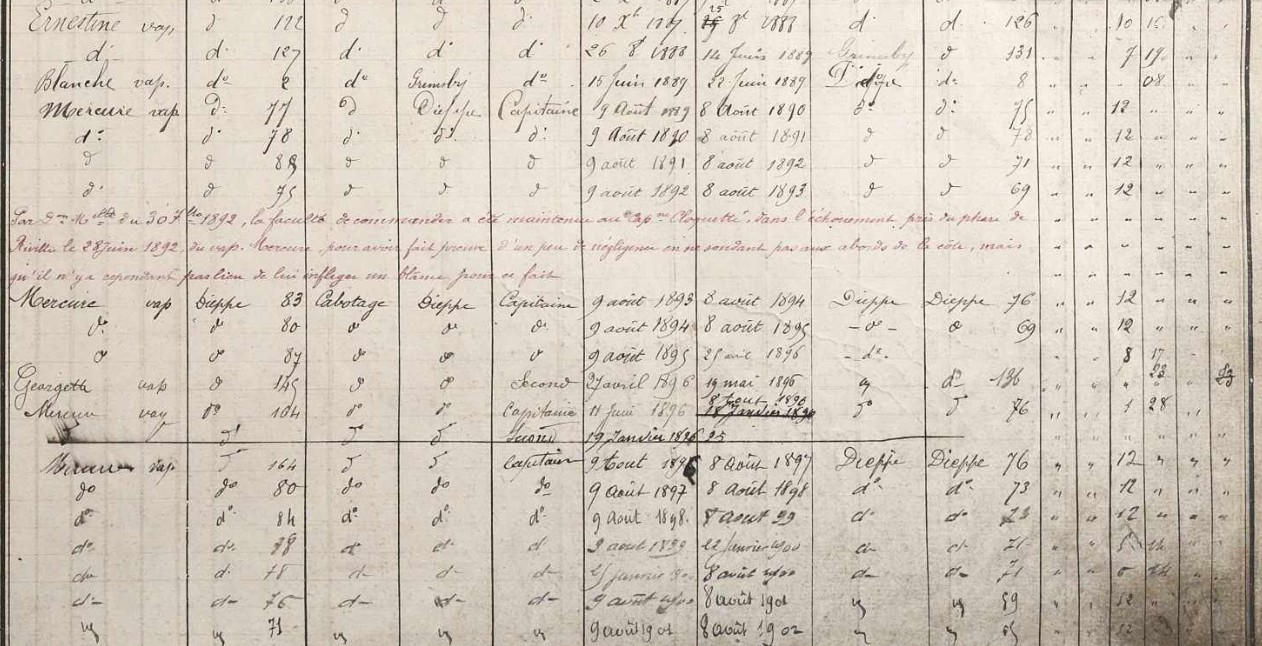 Ernestine vap d 122 d d d 10 Xe 25 8e 1888 d d 126 " " 10
d° 127 d° d° d° 26 8e 1888 14 Juin 1889 Grimsby d 131 " " 7 19
Blanche vap. d° 2 d° Grimsby d° 15 Juin 1889 22 Juin 1889 d° 8 08
Mercure vap d° 77 d Dieppe Capitaine 9 Août 1889 8 Août 1890 d° d° 75 " " 12
d° d° 78 d° d° d° 9 Août 1890 8 août 1891 d d 78 " " 12
d d 9 août 1891 8 août 1892 d d 71 " " 12
d° d 75 d d d 9 août 1892 8 août 1893 d d 69 " " 12
Par d on M elle du 30 7bre 1892, la faculté de commander a été maintenue au Cap ne Cloquette, dans l'échouement, près du phare de
le 28 juin 1892, du vap. Mercure, pour avoir fait preuve d'un peu de négligence en ne sondant pas aux abords de la côte, mais
qu'il n'y a cependant pas lieu de lui infliger un blâme pour ce fait
Mercure vap Dieppe 83 Cabotage Dieppe Capitaine 9 août 1893 8 août 1894 Dieppe Dieppe 76 " " 12
d° d 80 d d d 9 août 1894 8 août 1895 - d° - d 69 " " 12
d d 87 d d d 9 août 1895 25 avril 1896 - d° - 8 17
Georgette vap d 145 d d Second 27 avril 1896 19 mai 1896 d° 136 " " 23 23
Mercure vap d° 104 d° d° Capitaine 11 Juin 1896 8 Août 1896 18 Janvier d° 76 " " 1 28
d° d° d° Second 19 Janvier 1896 25
Mercure vap 164 Capitaine 9 Août 1896 8 Août 1897 Dieppe Dieppe 76 " " 12
do do 80 do do do 9 Août 1897 8 Août 1898 d° d° 73 " " 12
d° d° 84 d° d° d° 9 Août 1898. 8 Août 99 d° d° 73 " " 12
d° d° d° d d 9 août 1899 22 Janvier 1900 d d 71 " " 5 14
do d 78 d d d 8 août 1900 d d 71 " "
d d 76 d d d 9 août 1900 8 août 1901 " " 12
71 9 août 1901 8 août 1902 " " 12